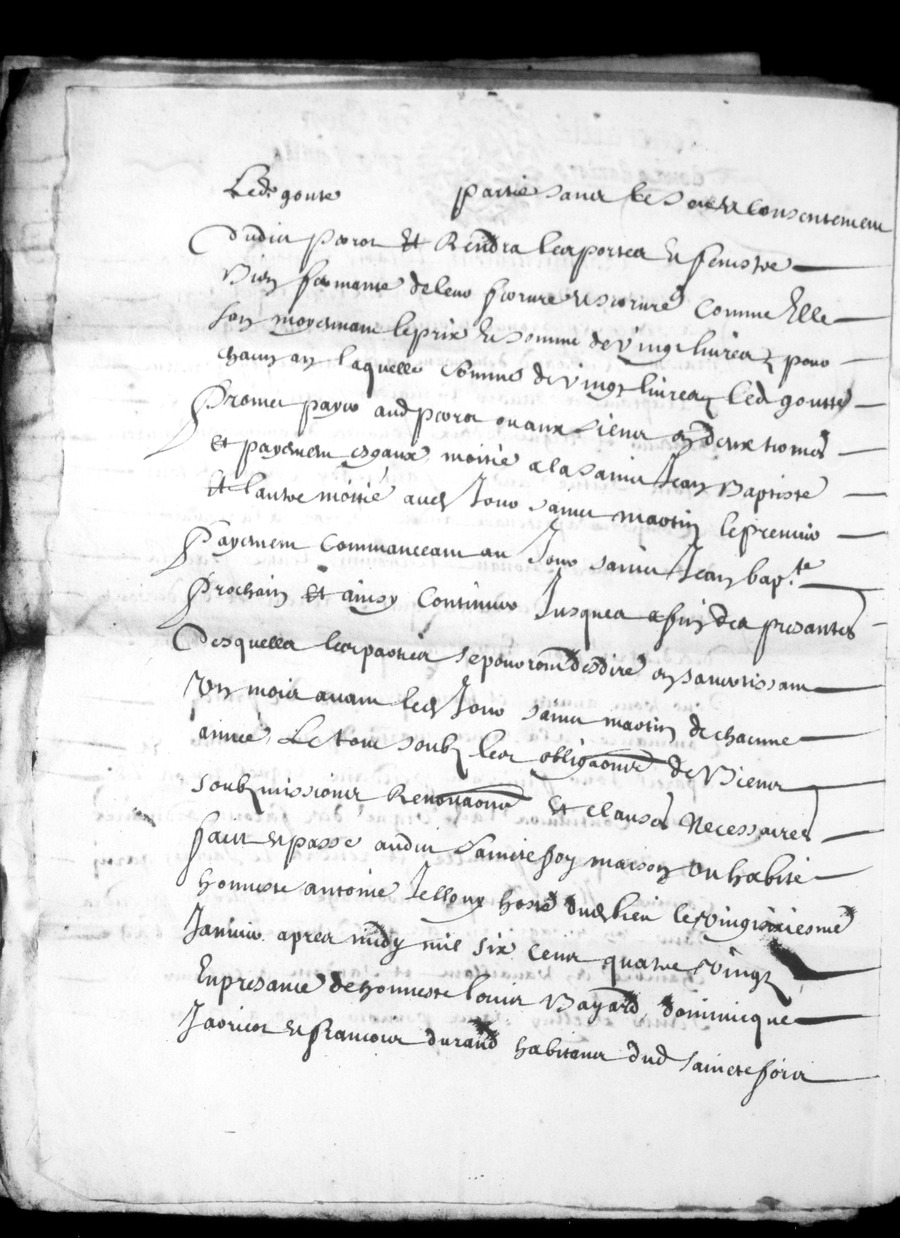 Led goutte partie sans le consentement
dudit perrot et Rendra les portes et fenestre
bien fermante de leur serrure comme Elle
son moyennant le prix et somme de vingt livres pour
chacun an laquelle somme de vingt livres led goutte
promet payer aud perrot ou aux siens en deux termes
et payement esgaux moitie a la saint Jean Baptiste
et lautre moitié aud Jour saint martin le premier
payement commanceant au Jour saint Jean bap.te
prochain et ainsy continuer Jusques a fin des presantes
desquelles les parties se pourront desdire en savertissant
un moix avant led Jour saint martin de chacune
année, Le tout soubz les obligations de biens
soubzmissions Renontiaons et clauses Necessaires
fait et passé audit saincte foy maison ou habite
honneste antoine hoste dud lieu le vingtsixiesme
Janvier apres midy mil six cent quatre vingt
En presance de honneste louis Bayard, dominicque
et francois durand habitans dud saincte foix